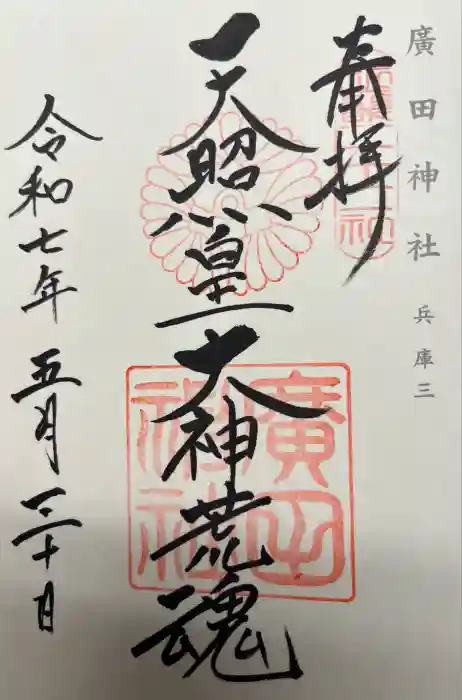 廣田神社 兵庫三
奉拝
天照皇大神荒魂
令和七年五月三十日
廣田
神社